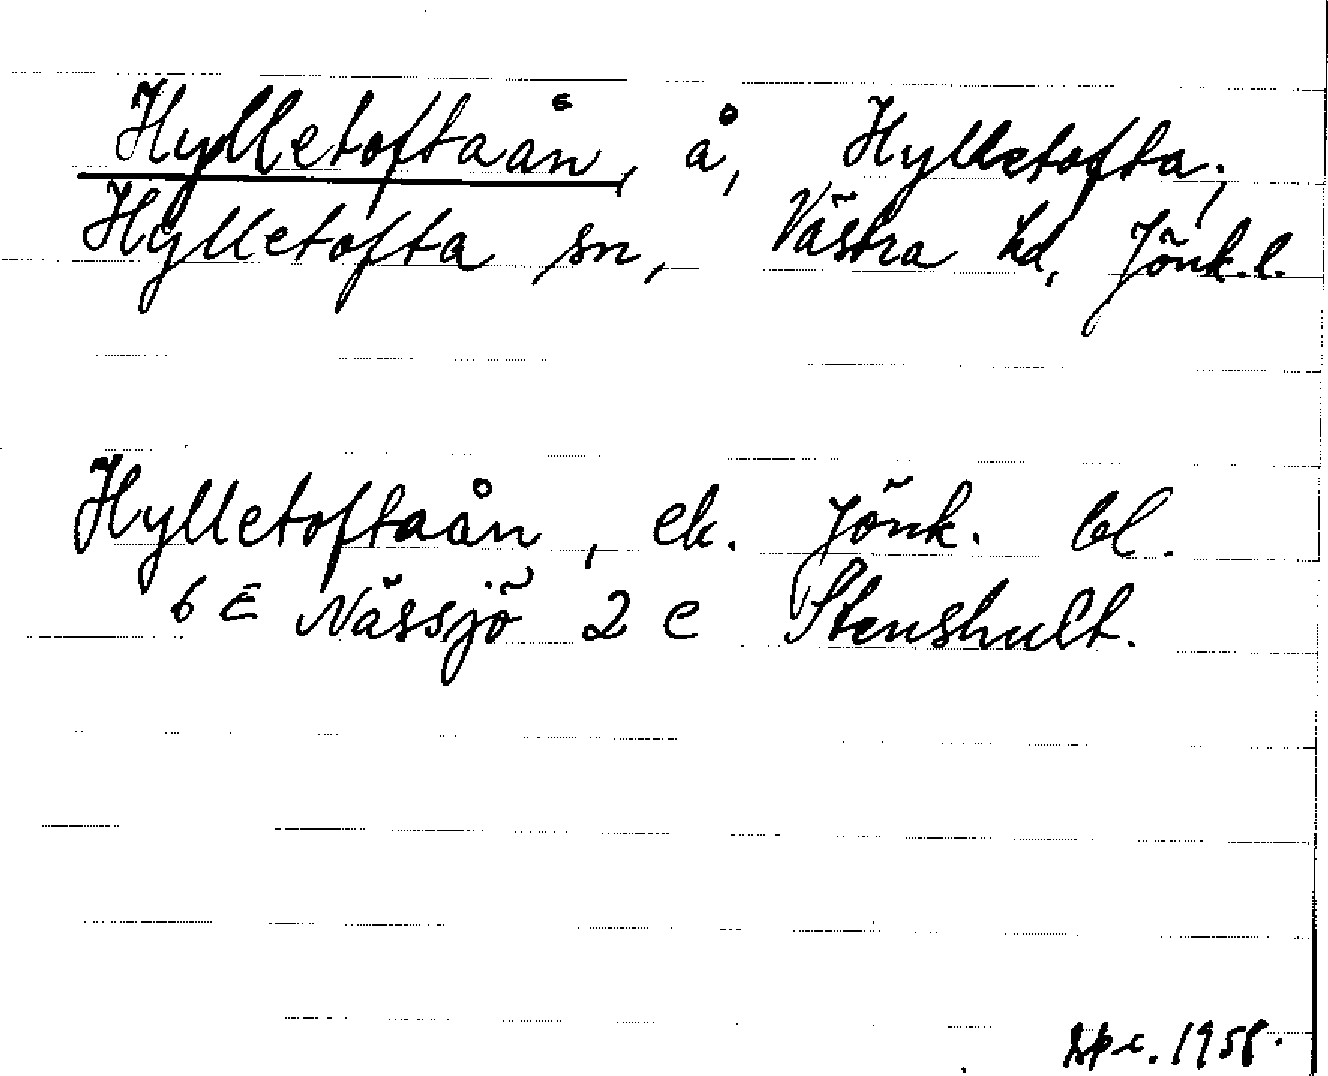 Hylletoftaån, å, Hylletofta;
Hylletofta sn, Västra hd, Jönk. l.
Hylletoftaån, ek. Jönk. bl.
6 E Nässjö 2 c Stenshult.
1958.